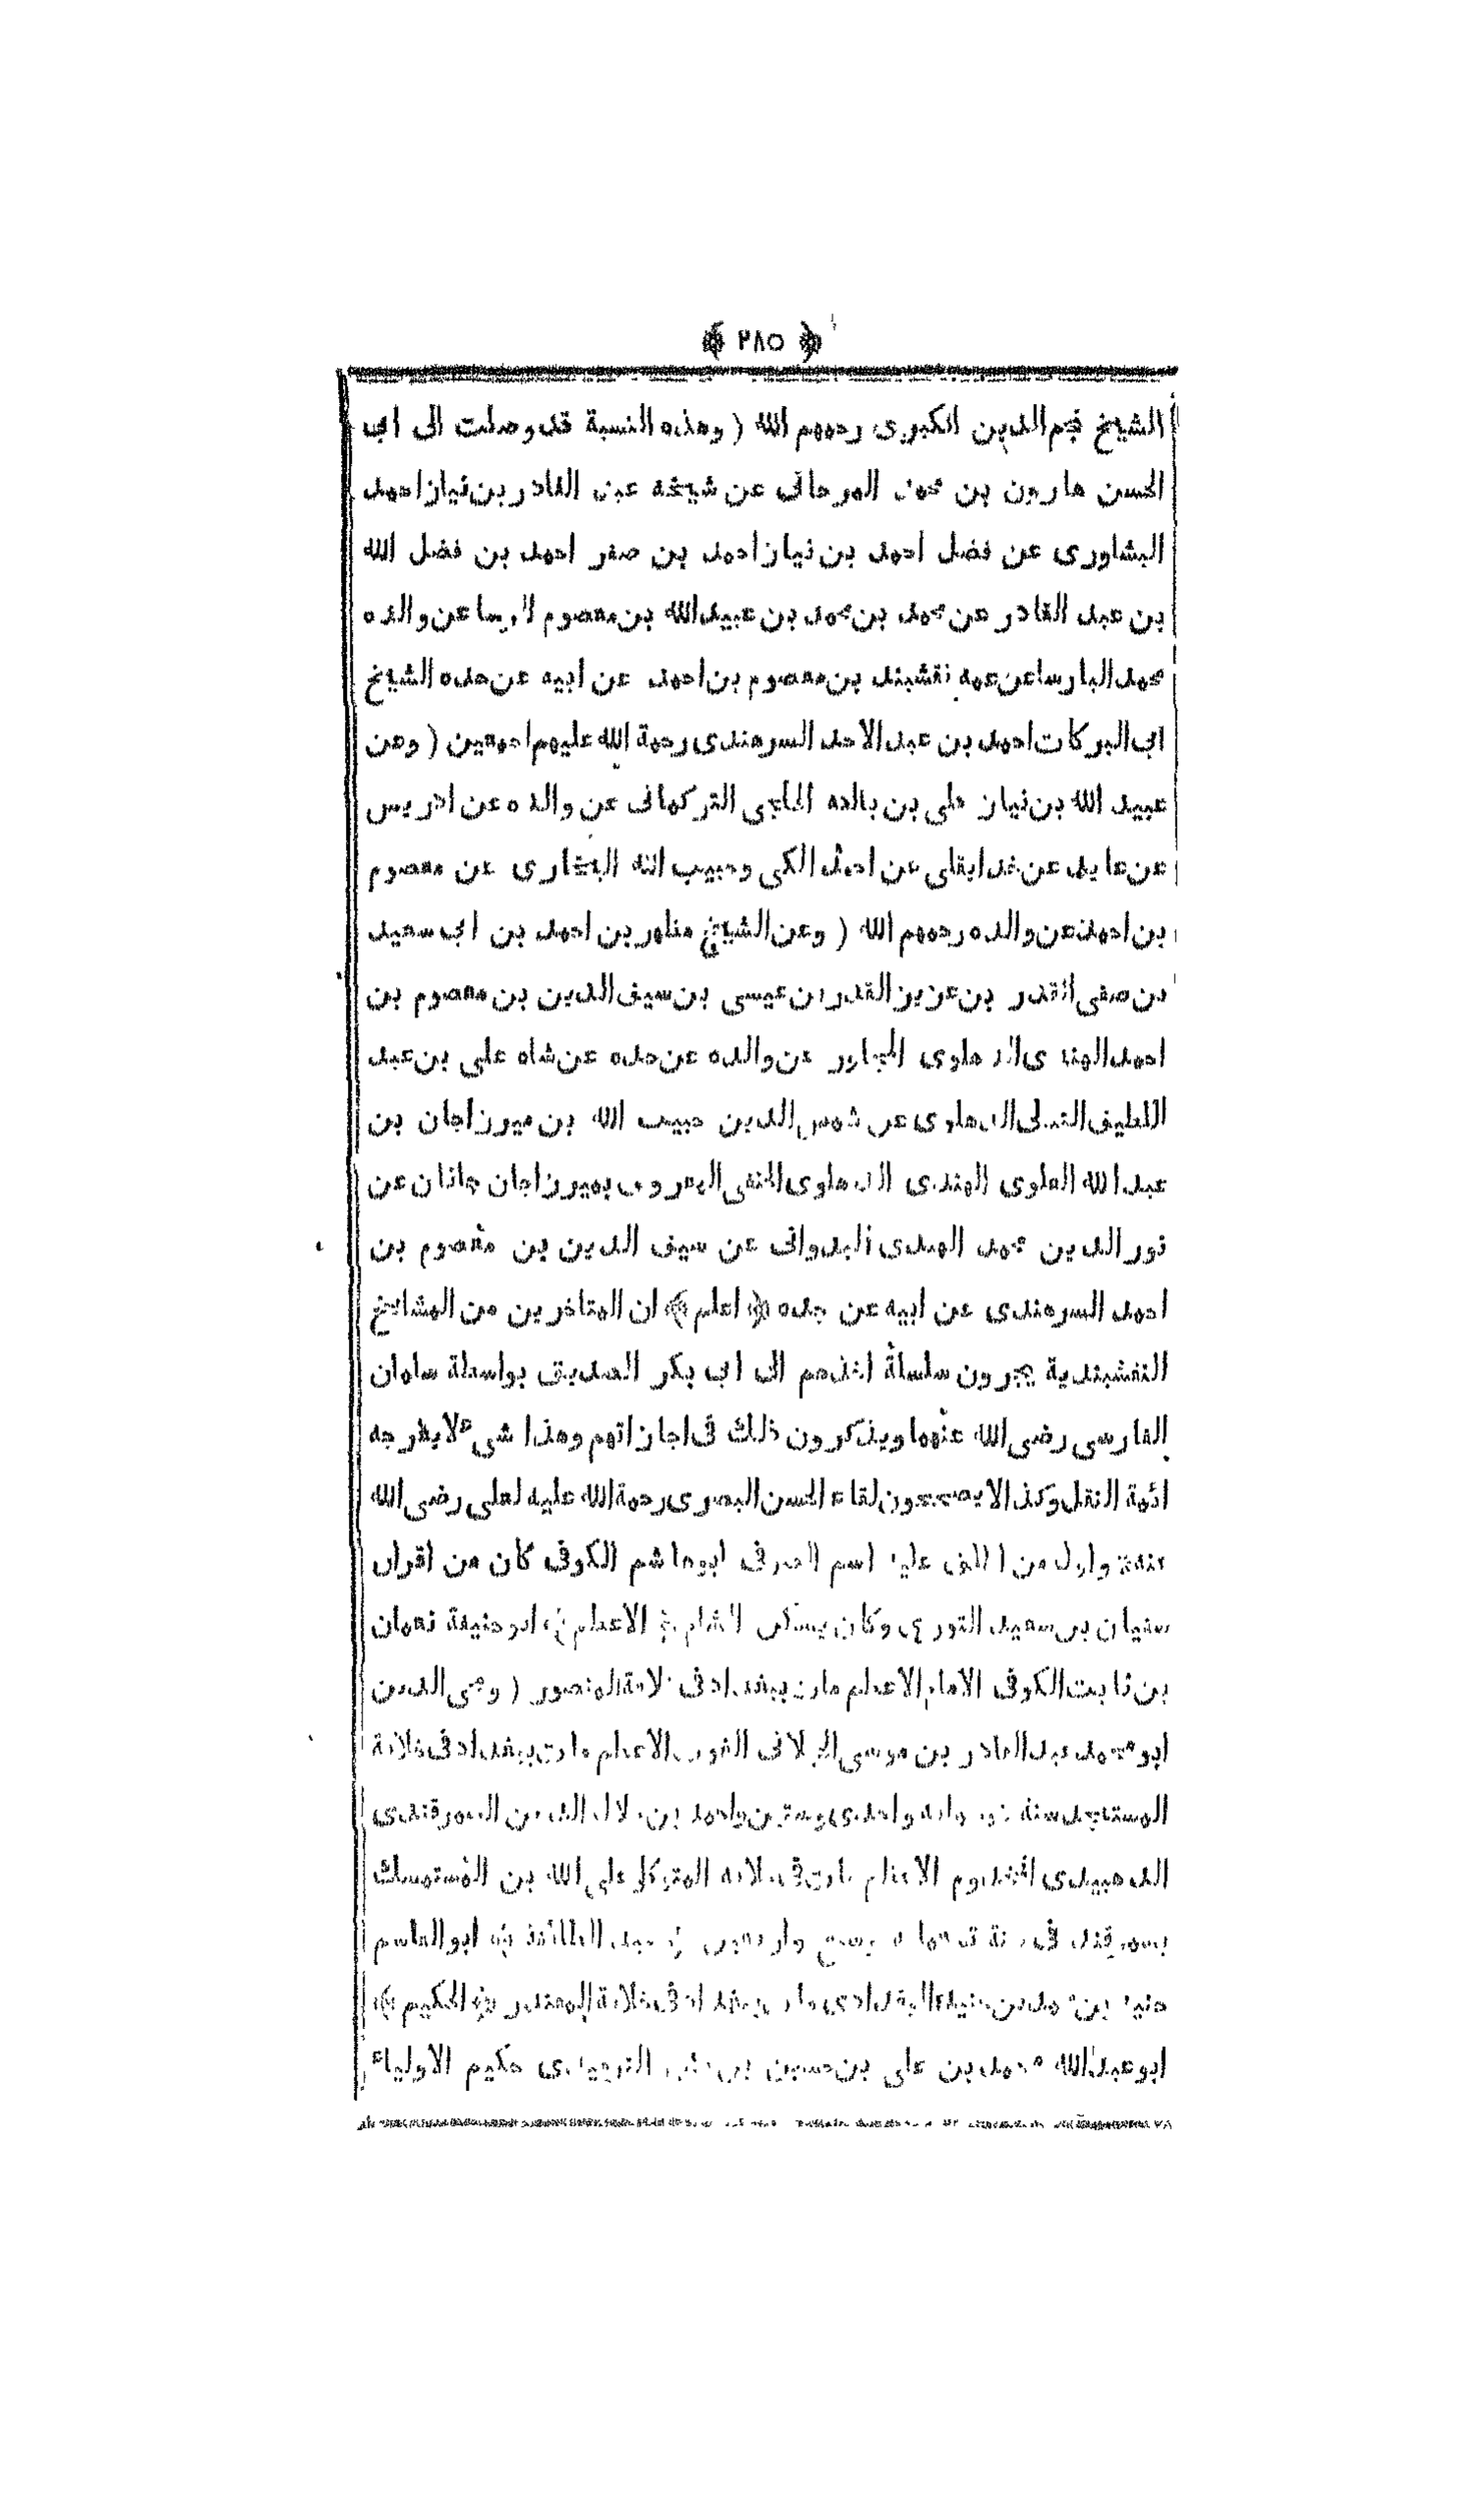 ﴿ ٢٨٥ ﴾
الشيخ نجم الدين الكبرى رحمهم الله ( وهذه النسبة قد وصلت الى ابى
الحسن هارون بن محمد المرجانى عن شيخه عبد القادر بن نياز احمد
البشاورى عن فضل احمد بن نياز احمد بن صفر احمد بن فضل الله
بن عبد القادر عن محمد بن محمد بن عبيد الله بن معصوم عن والده
محمد البارسا عن عمه نقشبند بن معصوم بن احمد عن ابيه عن جده الشيخ
ابى البركات احمد بن عبد الاحد السرهندى رحمة الله عليهم اجمعين ( وعن
عبيد الله بن نياز على بن بالده الحاجى التركمانى عن والده عن ادريس
عن عن خدابقلى عن احمد المكى وحبيب الله البخارى عن معصوم
بن احمد عن والده رحمهم الله ( وعن الشيخ مظهر بن احمد بن ابى سعيد
بن صفى القدر بن عزيز القدر بن عيسى بن سيف الدين بن معصوم بن
احمد الهندى الدهلوى المجاور عن والده عن جده عن شاه على بن عبد
اللطيف الدهلوى عن شمس الدين حبيب الله بن ميرزاجان بن
عبد الله العلوى الهندى الدهلوى الحنفى المعروف بميرزاجان جانان عن
نور الدين محمد الهندى البدوانى عن سيف الدين بن معصوم بن
احمد السرهندى عن ابيه عن جده ﴿ اعلم ﴾ ان المتاخرين من المشائخ
النقشبندية يجرون سلسلة اخذهم الى ابى بكر الصديق بواسطة سلمان
الفارسى رضى الله عنهما ويذكرون ذلك فى اجازاتهم وهذا شىء لا يعرجه
ائمة النقل وكذا لا يصححون لقاء الحسن البصرى رحمة الله عليه لعلى رضى الله
عنه واول من اطلق عليه اسم الصوفى ابوهاشم الكوفى كان من اقران
سفيان بن سعيد الثورى وكان يسكن الشام ﴿ الاعظم ﴾ ابو حنيفة نعمان
بن ثابت الكوفى الامام الاعظم مات ببغداد فى خلافة المنصور ( ومحى الدين
ابو محمد عبد القادر بن موسى الجيلانى الغوث الاعظم مات ببغداد فى خلافة
المستنجد سنة واحدى وستين واحمد بن جلال الدين السمرقندى
الدهبيدى المخدوم الاعظم مات فى خلافة المتوكل على الله بن المستمسك
بسمرقند فى سنة تسعمائة وتسع واربعين ﴿ سيد الطائفة ﴾ ابو القاسم
جنيد بن محمد بن جنيد البغدادى مات ببغداد فى خلافة المقتدر ﴿ الحكيم ﴾
ابو عبد الله محمد بن على بن حسين بن الترمذى حكيم الاولياء